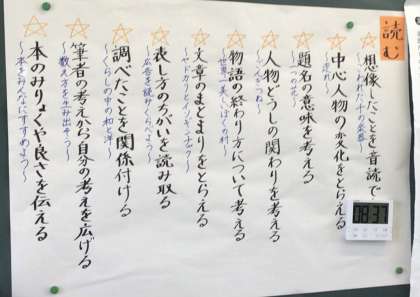 読む
想像したことを音読で
〜われたバイオリンの
中心人物の変化をとらえる
〜走れ〜
題名の意味を考える
〜一つの花〜
人物どうしの関わりを考える
〜ごんぎつね〜
物語の終わり方について考える
〜世界一美しいぼくの村〜
文章のまとまりをとらえる
〜ヤドカリとイソギンチャク〜
表し方のちがいを読み取る
〜広告を読みくらべよう〜
調べたことを関係付ける
〜くらしの中の和と洋〜
筆者の考えから自分の考えを広げる
〜数え方を生み出そう〜
本のみりょくや良さを伝える
〜本をみんなにすすめよう〜
08 37